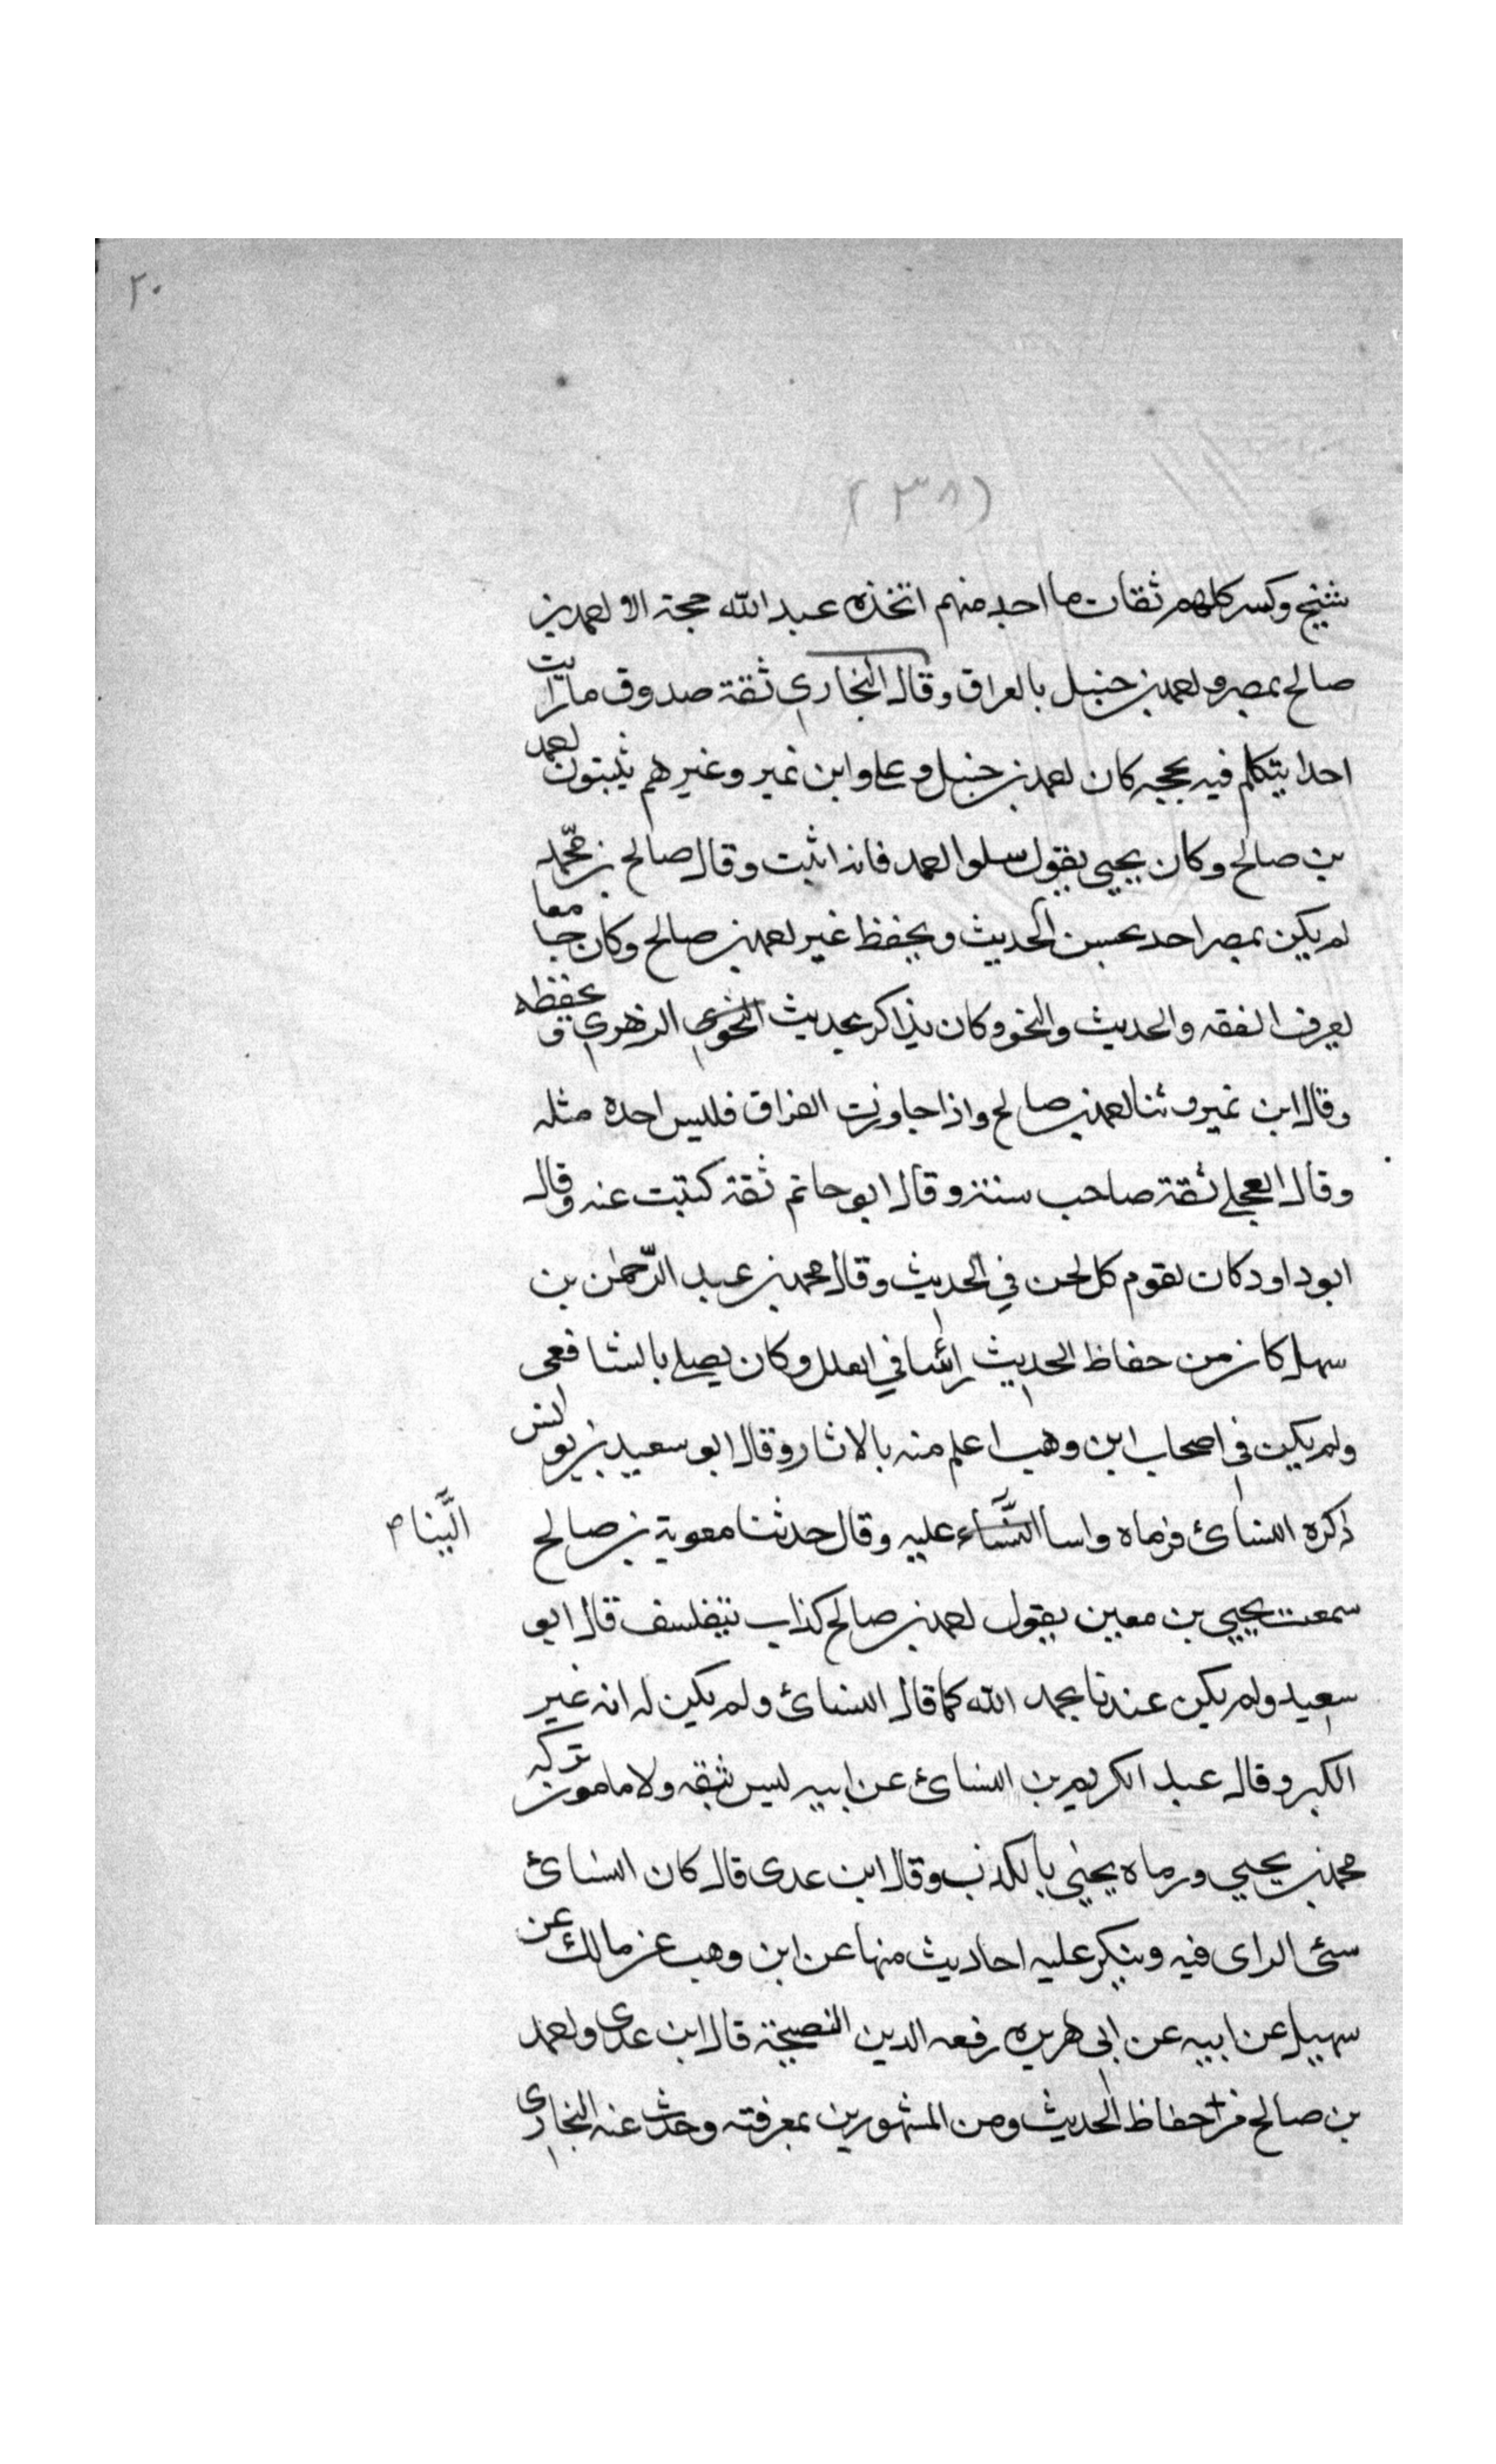 ٢٠
(٣٨)
شيخ وكسر كلهم ثقات ما احد منهم اتخذه عبد الله حجة الا احمد بن
صالح بمصر واحمد بن حنبل بالعراق وقال البخاري ثقة صدوق ما رايت
احدا يتكلم فيه بحجه كان احمد بن حنبل وعلى وابن نمير وغيرهم يثبتون احمد
بن صالح وكان يحيى يقول سلوا احمد فانه اثبت وقال صالح بن محمد
لم يكن بمصر احد يحسن الحديث ويحفظ غير احمد بن صالح وكان جامعا
يعرف الفقه والحديث والنحو وكان يذاكر بحديث النحوي الزهري و يحفظه
وقال ابن نمير و ثنا احمد بن صالح واذا جاوزت الفراق فليس احده مثله
وقال العجلي ثقة صاحب سنة وقال ابو حاتم ثقة كتبت عنه وقال
ابو داود كان يقوم كل لحن في الحديث وقال محمد بن عبد الرّحمٰن بن
سهل كان من حفاظ الحديث رأسا في العلل وكان يصلي بالشافعى
ولم يكن في اصحاب ابن وهب اعلم منه بالاثار وقال ابو سعيد بن يونس
ذكره النسائ فرماه واسا النَّساء عليه وقال حدثنا معوية بن صالح
الثنا م
سمعت يحيى بن معين يقول احمد بن صالح كذاب يتفلسف قال ابو
سعيد ولم يكن عندنا بحمد الله كما قال النسائ ولم يكن له انه غير
الكبر وقال عبد الكريم بن النسائ عن ابيه ليس بثقه ولا مامون تركه
محمد بن يحيي ورماه يحيٰي بالكذب وقال ابن عدى قال كان النسائ
سئ الراى فيه وينكر عليه احاديث منها عن ابن وهب عن مالك عن
سهيل عن ابيه عن ابى هريره رفعه الدين النصيحة قال ابن عدى واحمد
بن صالح من حفاظ الحديث ومن المشهورين بمعرفته وحدث عنه البخارى